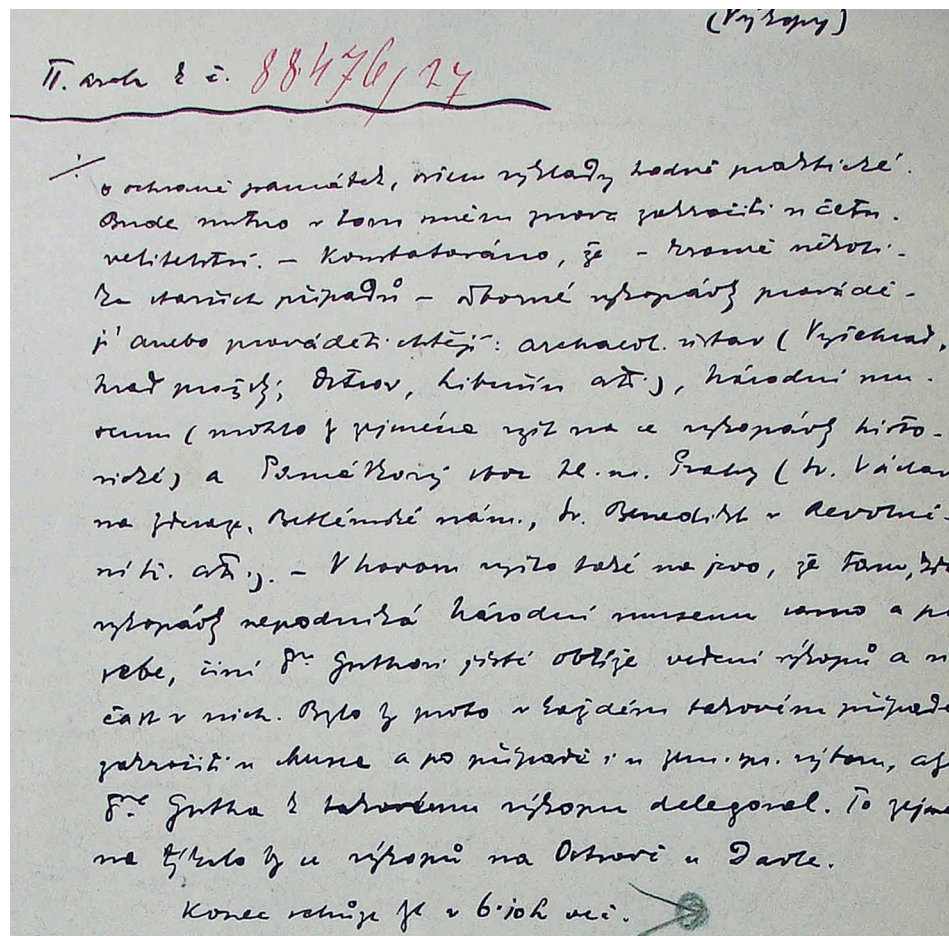 (Výkopy)
II. arch k č. 88.476/27
o ochraně památek, ovšem výklady hodně praktické.
Bude nutno v tom směru znova zakročiti u četn.
velitelství. – Konstatováno, že – kromě několi-
ka starších případů – odborné vykopávky provádě-
jí anebo prováděti chtějí: archaeol. ústav (Vyšehrad,
hrad pražský, Ostrov, Libušín atd.), Národní mu-
seum (mohlo by zejména vzít na se vykopávky histo-
rické) a Památkový sbor hl. m. Prahy (sv. Václav
na Zderaze, Betlémské nám., sv. Benedikt v Revoluč-
ní tř. atd.). – V horam vzito také na jevo, že tam, kde
vykopávky nepodniká Národní museum samo a pro
sebe, činí dru Guthovi jisté obtíže vedení výkopů a ú-
čast v nich. Bylo by proto v každém takovém případě
zakročiti u Musea a po případě i u zem. spr. výboru, aby
dra Gutha k takovému výkopu delegoval. To zejmé-
na týkalo by se výkopů na Ostrově u Davle.
Konec schůze je v 6. hod. več.